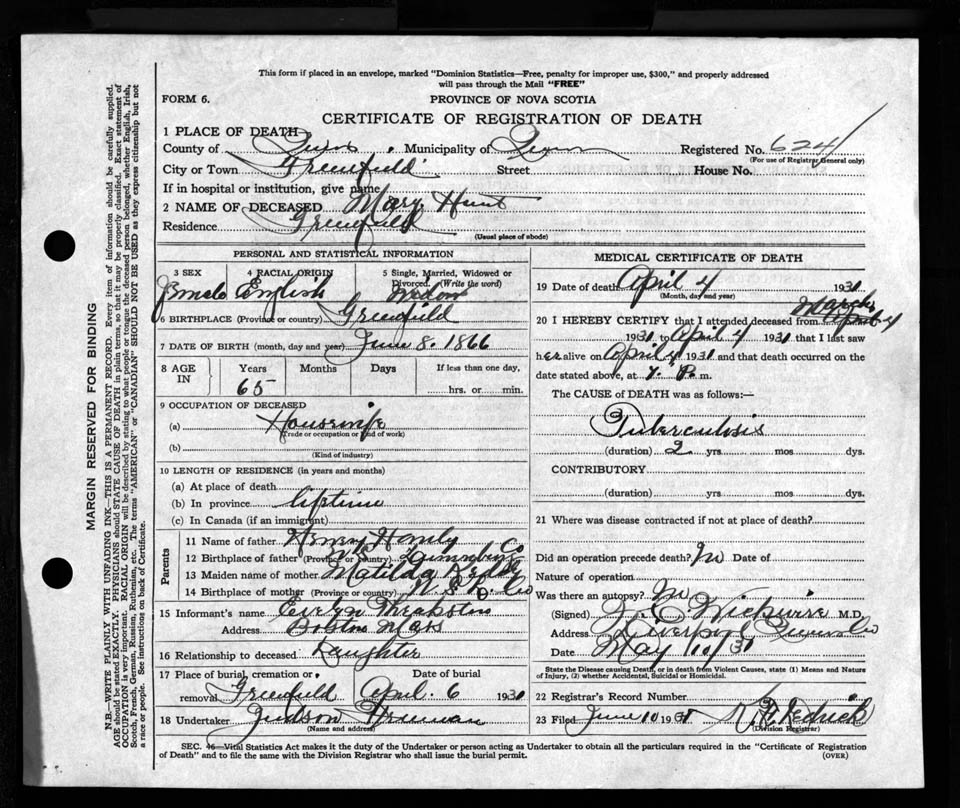 This form if placed in an envelope, marked "Dominion Statistics—Free, penalty for improper use, $300," and properly addressed
will pass through the Mail "FREE"
FORM 6.
PROVINCE OF NOVA SCOTIA
CERTIFICATE OF REGISTRATION OF DEATH
1 PLACE OF DEATH
County of Queens Municipality of Queens Registered No. 624
(For use of Registrar General only)
City or Town Greenfield Street House No.
If in hospital or institution, give name
2 NAME OF DECEASED Mary Hunt
Residence Greenfield
(Usual place of abode)
PERSONAL AND STATISTICAL INFORMATION
3 SEX 4 RACIAL ORIGIN 5 Single, Married, Widowed or
Divorced. (Write the word)
Female English Widow
6 BIRTHPLACE (Province or country) Greenfield
7 DATE OF BIRTH (month, day and year) June 8. 1866
8 AGE IN Years Months Days If less than one day,
65 hrs. or min.
9 OCCUPATION OF DECEASED
(a) Housewife
(Trade or occupation or kind of work)
(b)
(Kind of industry)
10 LENGTH OF RESIDENCE (in years and months)
(a) At place of death
(b) In province lifetime
(c) In Canada (if an immigrant)
Parents
11 Name of father Henry
12 Birthplace of father (Province or country) N.S. Co
13 Maiden name of mother Matilda
14 Birthplace of mother (Province or country) N.S. Co
15 Informant's name Evelyn
Address Boston Mass
16 Relationship to deceased Daughter
17 Place of burial, cremation or
removal Greenfield April. 6 1931
18 Undertaker Judson Freeman
(Name and address)
MEDICAL CERTIFICATE OF DEATH
19 Date of death April 4 1931
(Month, day and year)
March 4
20 I HEREBY CERTIFY that I attended deceased from
1931 to April 4 1931 that I last saw
her alive on April 4 1931 and that death occurred on the
date stated above, at 7. P. m.
The CAUSE of DEATH was as follows:—
Tuberculosis
(duration) 2 yrs. mos dys.
CONTRIBUTORY
(duration) yrs. mos. dys.
21 Where was disease contracted if not at place of death?
Did an operation precede death? No Date of
Nature of operation
Was there an autopsy? No
(Signed) Wickwire M.D.
Address Liverpool Queens Co
Date May 10/31
State the Disease causing Death, or in death from Violent Causes, state (1) Means and Nature
of Injury, (2) whether Accidental, Suicidal or Homicidal.
22 Registrar's Record Number 6
23 Filed June 10 1931
(Division Registrar)
SEC. 46—Vital Statistics Act makes it the duty of the Undertaker or person acting as Undertaker to obtain all the particulars required in the "Certificate of Registration
of Death" and to file the same with the Division Registrar who shall issue the burial permit.
(OVER)
MARGIN RESERVED FOR BINDING
N.B.—WRITE PLAINLY WITH UNFADING INK—THIS IS A PERMANENT RECORD. Every item of information should be carefully supplied.
AGE should be stated EXACTLY. PHYSICIANS should STATE CAUSE OF DEATH in plain terms, so that it may be properly classified. Exact statement of
OCCUPATION is very important. RACIAL ORIGIN will be described by stating to what people or tongue the deceased person belonged, whether English, Irish,
Scotch, French, German, Russian, Ruthenian, etc. The terms "AMERICAN" or "CANADIAN" SHOULD NOT BE USED as they express citizenship but not
a race or people. See instructions on back of Certificate.